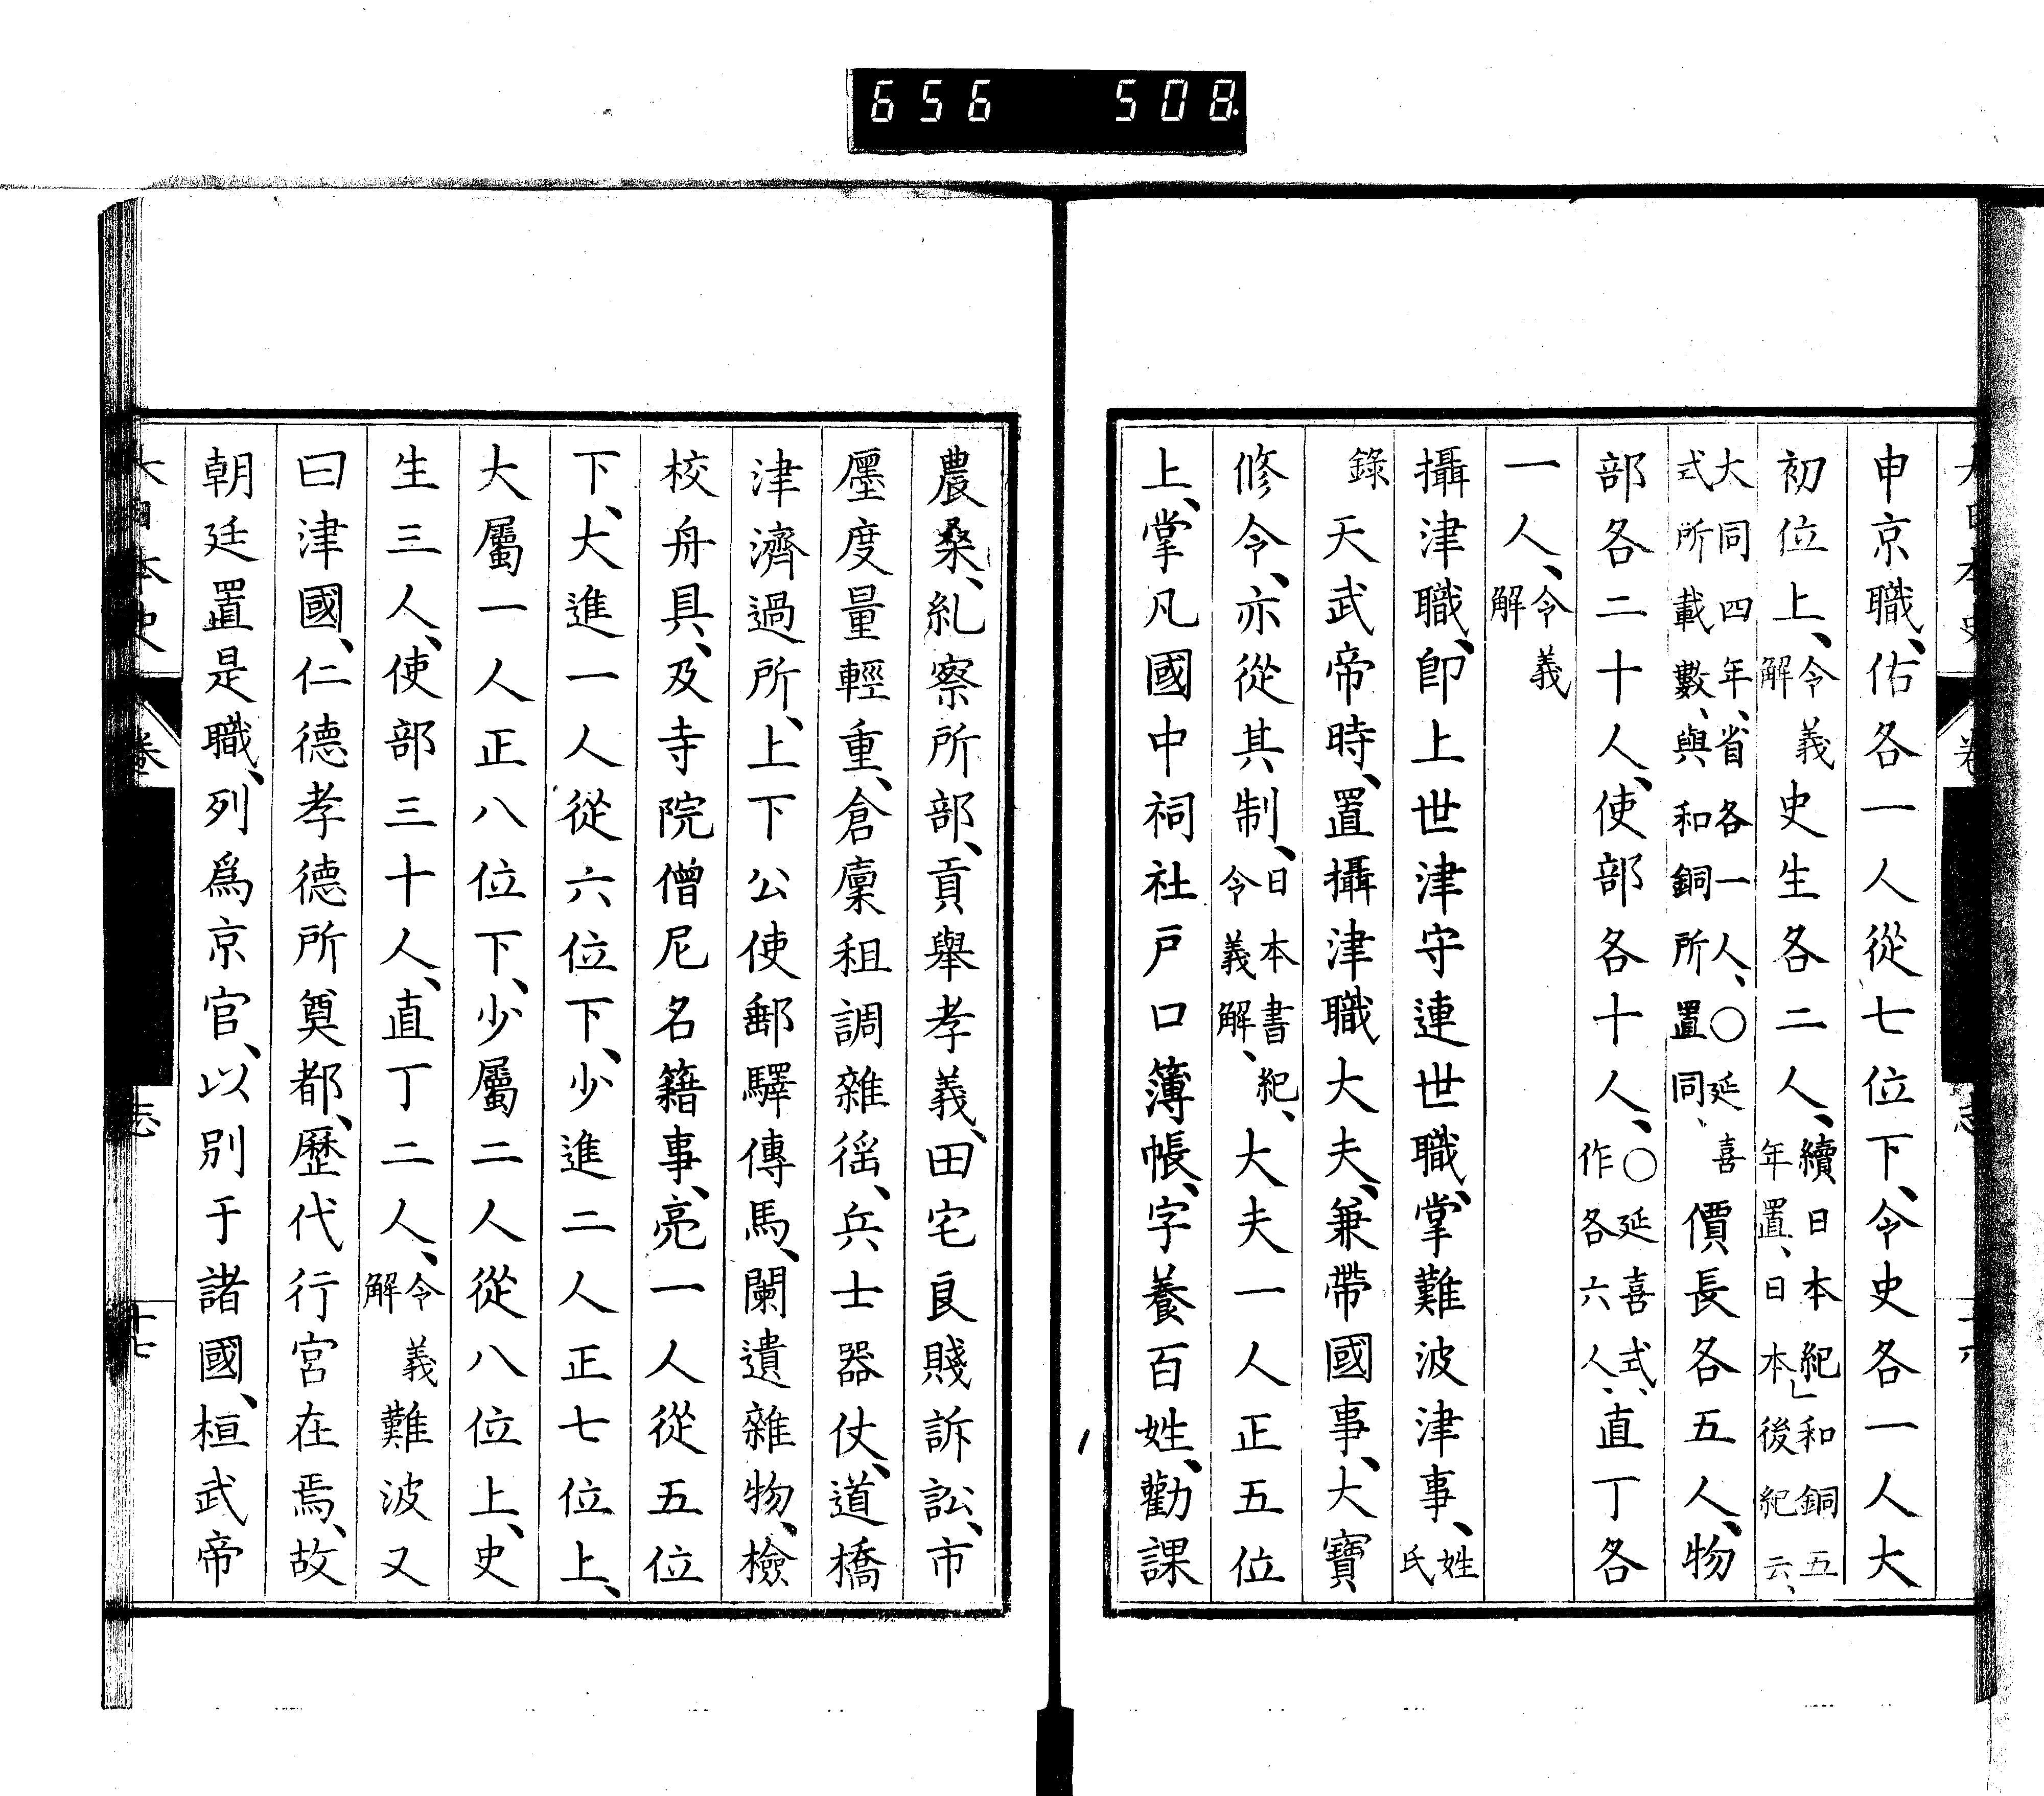 656 508
申京職、佑各一人從七位下、令史各一人大
初位上、令義解史生各二人、續日本紀」和銅五年置、日本後紀云、
大同四年、省各一人、○延喜式所載數、與和銅所置同、價長各五人、物
部各二十人、使部各十人、○延喜式、作各六人、直丁各
一人、令義解
攝津職、卽上世津守連世職、掌難波津事、姓氏
錄天武帝時、置攝津職大夫、兼帶國事、大寶
修令、亦從其制、日本書紀、令義解、大夫一人正五位
上、掌凡國中祠社戸口簿帳、字養百姓、勸課
農桑、糺察所部、貢舉孝義、田宅良賤訴訟、市
廛度量輕重、倉廩租調雜徭、兵士器仗、道橋
津濟過所、上下公使郵驛傳馬、闌遺雜物、檢
校舟具、及寺院僧尼名籍事、亮一人從五位
下、大進一人從六位下、少進二人正七位上、
大屬一人正八位下、少屬二人從八位上、史
生三人、使部三十人、直丁二人、令義解難波又
曰津國、仁德孝德所奠都、歷代行宮在焉、故
朝廷置是職、列爲京官、以別于諸國、桓武帝